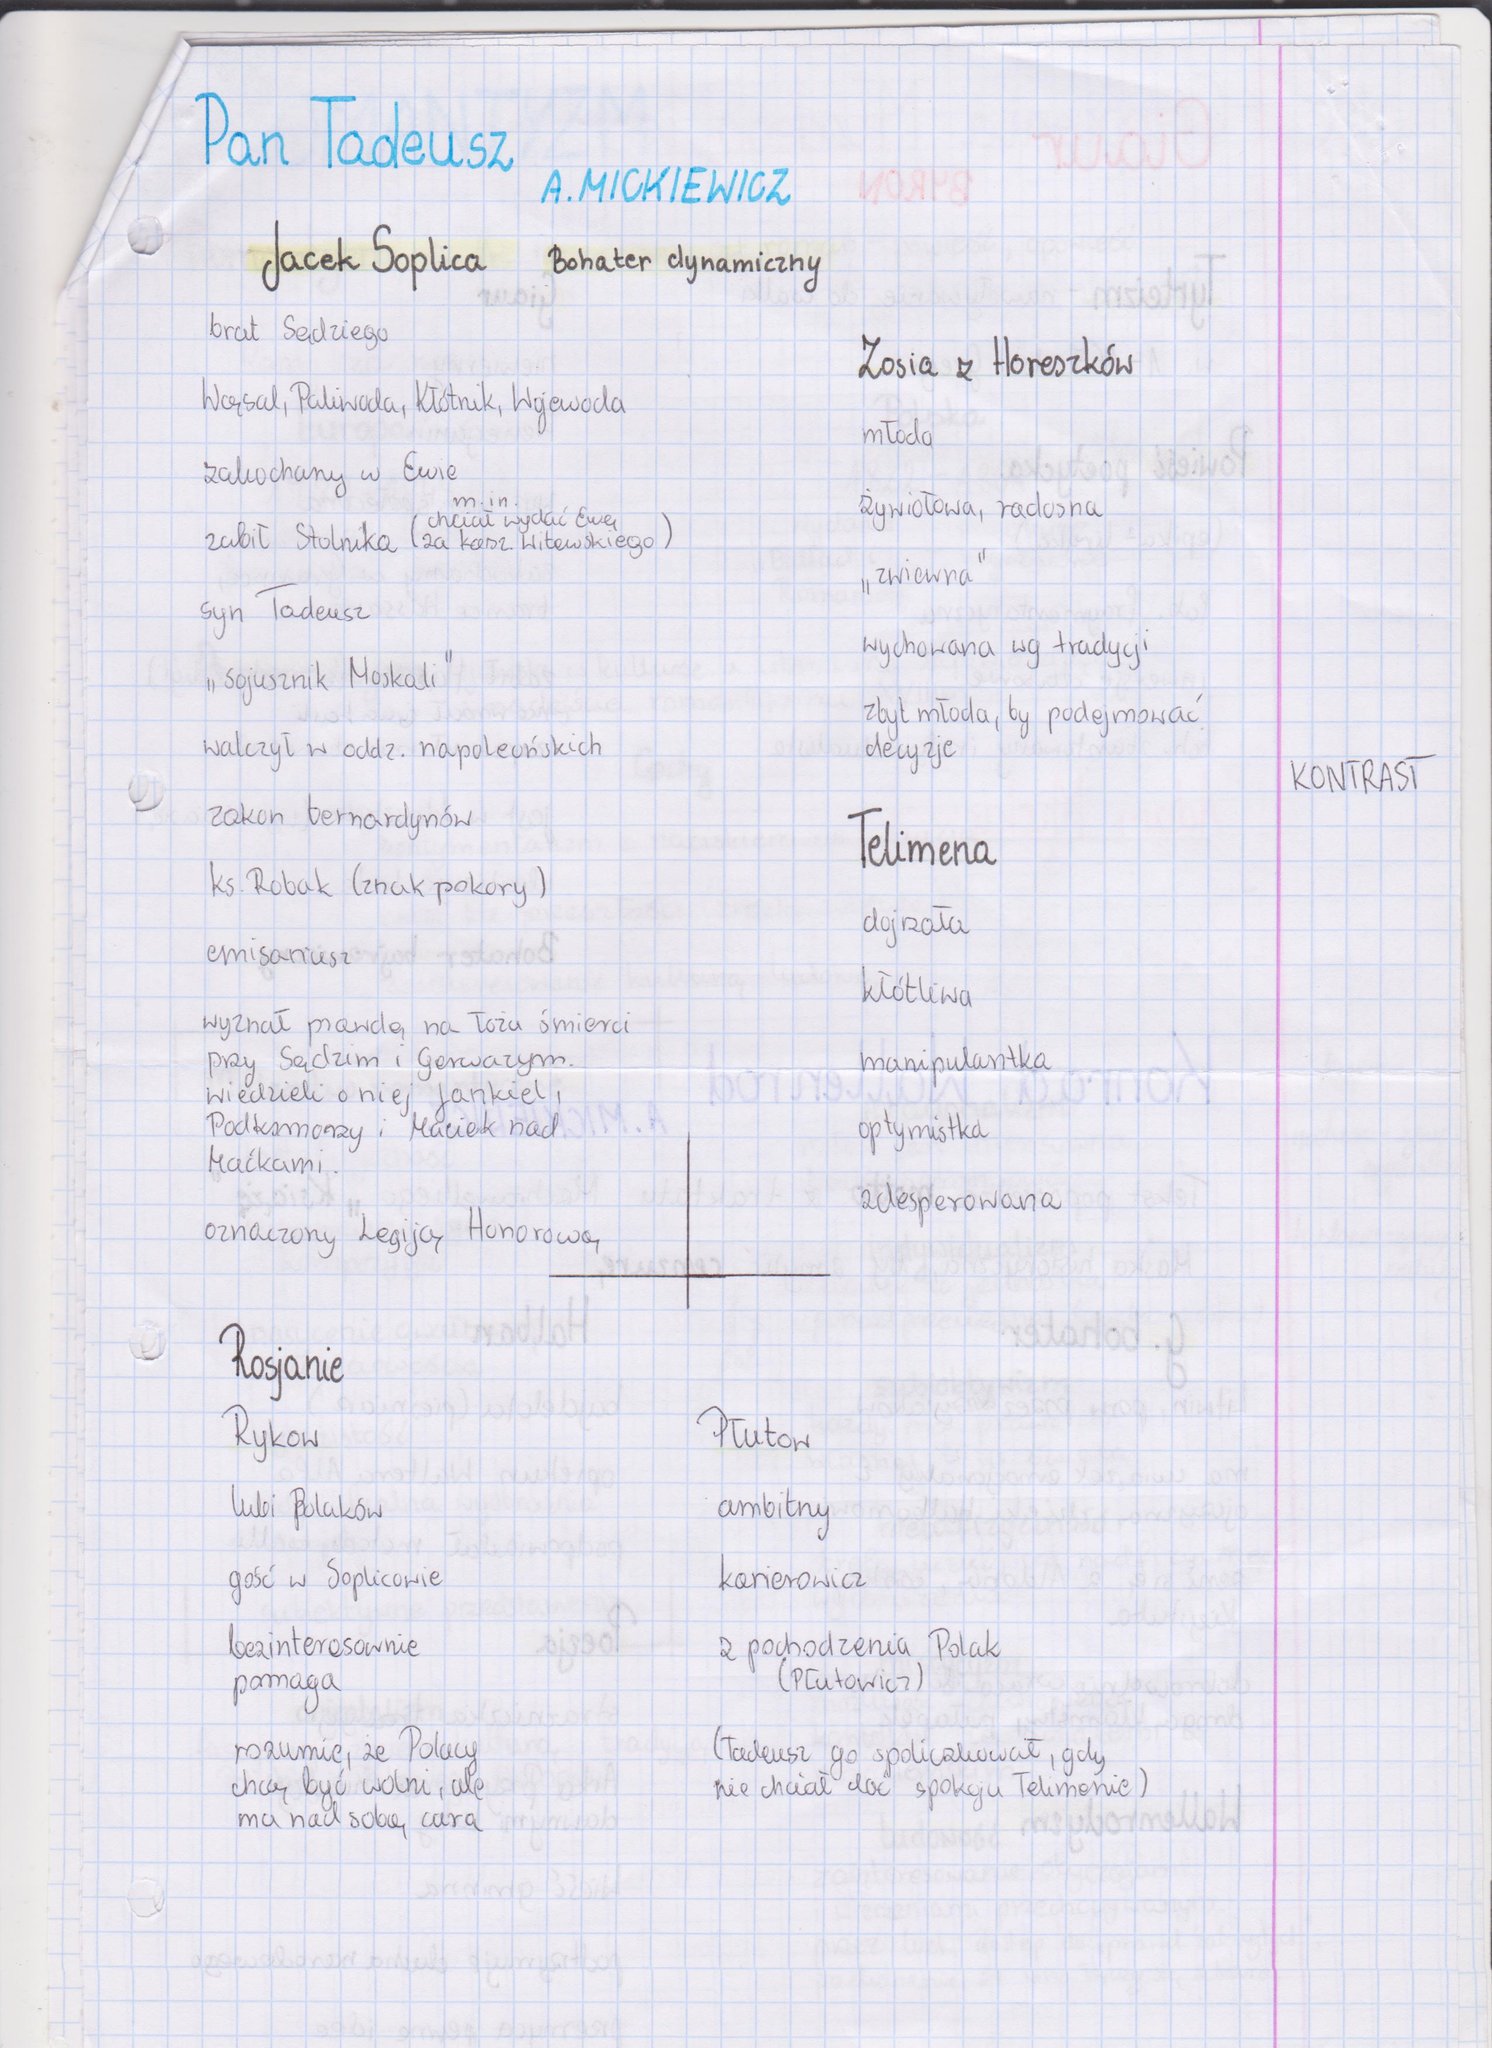 Pan Tadeusz
A. MICKIEWICZ
Jacek Soplica Bohater dynamiczny
brat Sędziego
Wąsal, Paliwoda, Kłótnik, Wojewoda
zakochany w Ewie
zabił Stolnika (m.in. chciał wydać Ewę
za kasz. Witewskiego)
syn Tadeusz
„sojusznik Moskali"
walczył w oddz. napoleońskich
zakon bernardynów
ks. Robak (znak pokory)
emisariusz
wyznał prawdę na łożu śmierci
przy Sędzim i Gerwazym.
wiedzieli o niej Jankiel,
Podkomorzy i Maciek nad
Maćkami.
oznaczony Legiją Honorową
Zosia z Horeszków
młoda
żywiołowa, radosna
„zwiewna"
wychowana wg tradycji
zbyt młoda, by podejmować
decyzje
KONTRAST
Telimena
dojrzała
kłótliwa
manipulantka
optymistka
zdesperowana
Rosjanie
Rykow
lubi Polaków
gość w Soplicowie
bezinteresownie
pomaga
rozumie, że Polacy
chcą być wolni, ale
ma nad sobą cara
Płutow
ambitny
karierowicz
z pochodzenia Polak
(Płutowicz)
(Tadeusz go spoliczkował, gdy
nie chciał dać spokoju Telimenie)